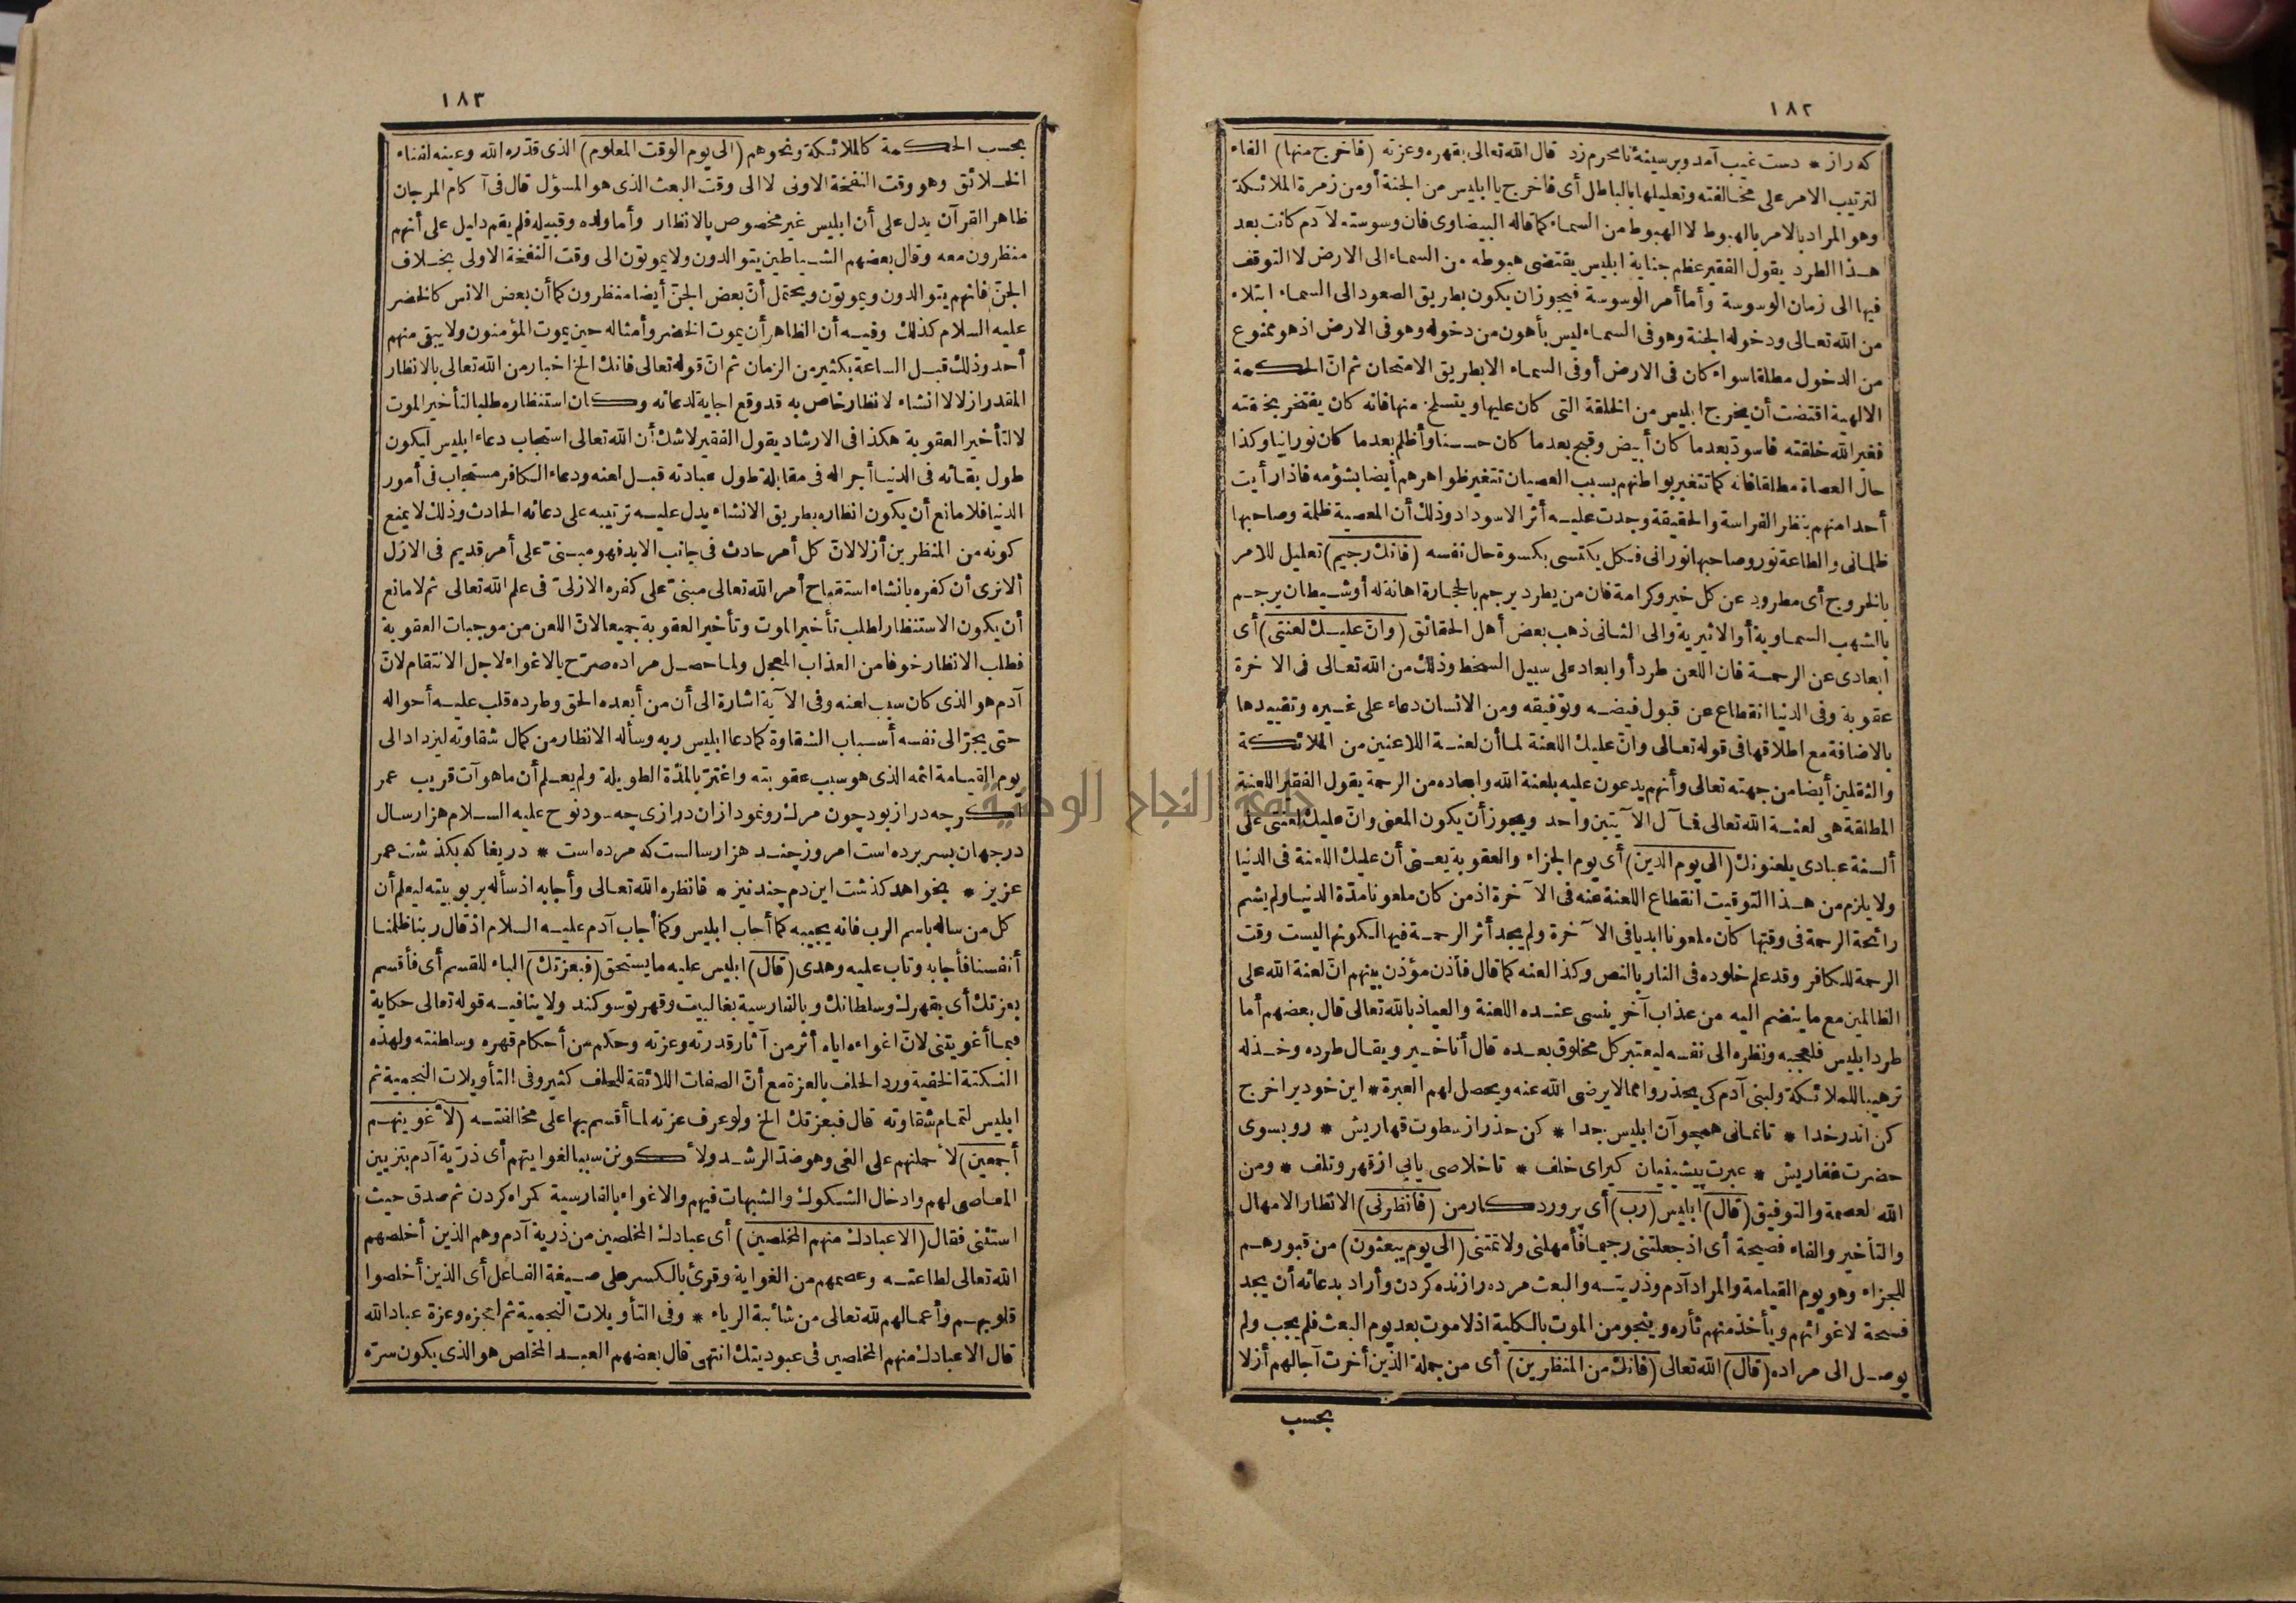 ١٨٢
كه راز * دست غيب آمد وبرسينهٔ نامحرم زد قال الله تعالى بقهره وعزته (فاخرج منها) الفاء
لترتيب الامر على مخالفته وتعليلها بالباطل أى فاخرج يا ابليس من الجنة أو من زمرة الملائكة
وهو المراد بالامر بالهبوط لا الهبوط من السماء كما قاله البيضاوى فان وسوسته لآدم كانت بعد
هذا الطرد يقول الفقير عظم جناية ابليس يقتضى هبوطه من السماء الى الارض لا التوقف
فيها الى زمان الوسوسة وأما أمر الوسوسة فيجوز ان يكون بطريق الصعود الى السماء ابتلاء
من الله تعالى ودخوله الجنة وهو فى السماء ليس بأهون من دخوله وهو فى الارض اذ هو ممنوع
من الدخول مطلقا سواء كان فى الارض أو فى السماء الا بطريق الامتحان ثم انّ الحكمة
الالهية اقتضت أن يخرج ابليس من الخلقة التى كان عليها وينسلخ منها فانه كان يفتخر بخلقته
فغير الله خلقته فاسودّ بعدما كان أبيض وقبح بعدما كان حسنا وأظلم بعدما كان نورانيا وكذا
حال العصاة مطلقا فانه كما تتغير بواطنهم بسبب العصيان تتغير ظواهرهم أيضا بشؤمه فاذا رأيت
أحدا منهم بنظر الفراسة والحقيقة وجدت عليه أثر الاسوداد وذلك أن المعصية ظلمة وصاحبها
ظلمانى والطاعة نور وصاحبها نورانى فكل يكتسى بكسوة حال نفسه (فانك رجيم) تعليل للامر
بالخروج أى مطرود عن كل خير وكرامة فان من يطرد يرجم بالحجارة اهانة له أو شيطان يرجم
بالشهب السماوية أو الاثيرية والى الثانى ذهب بعض أهل الحقائق (وانّ عليك لعنتى) أى
ابعادى عن الرحمة فان اللعن طرد أو ابعاد على سبيل السخط وذلك من الله تعالى فى الآخرة
عقوبة وفى الدنيا انقطاع عن قبول فيضه وتوفيقه ومن الانسان دعاء على غيره وتقييدها
بالاضافة مع اطلاقها فى قوله تعالى وانّ عليك اللعنة لما أن لعنة اللاعنين من الملائكة
والثقلين أيضا من جهته تعالى وأنهم يدعون عليه بلعنة الله وابعاده من الرحمة يقول الفقير اللعنة
المطلقة هى لعنة الله تعالى فمآل الآيتين واحد ويجوز أن يكون المعنى وانّ عليك لعنتى على
ألسنة عبادى يلعنونك (الى يوم الدين) أى يوم الجزاء والعقوبة يعنى أن عليك اللعنة فى الدنيا
ولا يلزم من هذا التوقيت انقطاع اللعنة عنه فى الآخرة اذ من كان ملعونا مدّة الدنيا ولم يشم
رائحة الرحمة فى وقتها كان ملعونا ابديا فى الآخرة ولم يجد أثر الرحمة فيها لكونها ليست وقت
الرحمة للكافر وقد علم خلوده فى النار بالنص وكذا لعنه كما قال فأذن مؤذن بينهم انّ لعنة الله على
الظالمين مع ما ينضم اليه من عذاب آخر ينسى عنده اللعنة والعياذ بالله تعالى قال بعضهم أما
طرد ابليس فلعجبه ونظره الى نفسه ليعتبر كل مخلوق بعده قال أنا خير ويقال طرده وخذله
ترهيبا للملائكة ولبنى آدم كى يحذروا مما لا يرضى الله عنه ويحصل لهم العبرة * اين خودير اخرج
كن اندر خدا * تا نمانى همچو آن ابليس جدا * كن حذر از سطوت قهاريش * رو بسوى
حضرت غفاريش * عبرت پيشينيان كير اى خلف * تا خلاصى يابى از قهر وتلف * ومن
الله العصمة والتوفيق (قال) ابليس (رب) أى پروردكار من (فانظرنى) الانظار الامهال
والتأخير والفاء فصيحة أى اذ جعلتنى رجيما فأمهلنى ولا تمتنى (الى يوم يبعثون) من قبورهم
للجزاء وهو يوم القيامة والمراد آدم وذريته والبعث مرده را زنده كردن وأراد بدعائه أن يجد
فسحة لاغوائهم ويأخذ منهم ثأره وينجو من الموت بالكلية اذ لا موت بعد يوم البعث فلم يجب ولم
يوصل الى مراده (قال) الله تعالى (فانك من المنظرين) أى من جملة الذين أخرت آجالهم أزلا
بحسب
١٨٣
بحسب الحكمة كالملائكة ونحوهم (الى يوم الوقت المعلوم) الذى قدّره الله وعينه لفناء
الخلائق وهو وقت النفخة الاولى لا الى وقت البعث الذى هو المسؤل قال فى آكام المرجان
ظاهر القرآن يدل على أن ابليس غير مخصوص بالانظار وأما ولده وقبيله فلم يقم دليل على أنهم
منظرون معه وقال بعضهم الشياطين يتوالدون ولا يموتون الى وقت النفخة الاولى بخلاف
الجنّ فانهم يتوالدون ويموتون ويحتمل أنّ بعض الجنّ أيضا منظرون كما أن بعض الانس كالخضر
عليه السلام كذلك وفيه أن الظاهر أن يموت الخضر وأمثاله حين يموت المؤمنون ولا يبقى منهم
أحد وذلك قبل الساعة بكثير من الزمان ثم انّ قوله تعالى فانك الخ اخبار من الله تعالى بالانظار
المقدر ازلا لا انشاء لانظار خاص به قد وقع اجابة لدعائه وكان استنظاره طلبا لتأخير الموت
لا لتأخير العقوبة هكذا فى الارشاد يقول الفقير لا شك أن الله تعالى استجاب دعاء ابليس ليكون
طول بقائه فى الدنيا أجرا له فى مقابلة طول عبادته قبل لعنه ودعاء الكافر مستجاب فى أمور
الدنيا فلا مانع أن يكون انظاره بطريق الانشاء يدل عليه ترتيبه على دعائه الحادث وذلك لا يمنع
كونه من المنظرين أزلا لانّ كل أمر حادث فى جانب الابد فهو مبنىّ على أمر قديم فى الازل
ألا ترى أن كفره بانشاء استقباح أمر الله تعالى مبنىّ على كفره الازلىّ فى علم الله تعالى ثم لا مانع
أن يكون الاستنظار لطلب تأخير الموت وتأخير العقوبة جميعا لانّ اللعن من موجبات العقوبة
فطلب الانظار خوفا من العذاب المعجل ولما حصل مراده صرّح بالاغواء لاجل الانتقام لانّ
آدم هو الذى كان سبب لعنه وفى الآية اشارة الى أن من أبعده الحق وطرده قلب عليه أحواله
حتى يجرّ الى نفسه أسباب الشقاوة كما دعا ابليس ربه وسأله الانظار من كمال شقاوته ليزداد الى
يوم القيامة اثمه الذى هو سبب عقوبته واغترّ بالمدّة الطويلة ولم يعلم أن ما هو آت قريب عمر
اكرچه دراز بود چون مرك رو نمود ازان درازى چه سود نوح عليه السلام هزار سال
در جهان بسر برده است امروز چند هزار سالست كه مرده است * دريغا كه بكذشت عمر
عزيز * بخواهد كذشت اين دم چند نيز * فانظره الله تعالى وأجابه اذ سأله بربوبيته ليعلم أن
كل من سأله باسم الرب فانه يجيبه كما أجاب ابليس وكما أجاب آدم عليه السلام اذ قال ربنا ظلمنا
أنفسنا فأجابه وتاب عليه وهدى (قال) ابليس عليه ما يستحق (فبعزتك) الباء للقسم أى فأقسم
بعزتك أى بقهرك وسلطانك وبالفارسية بغالبيت وقهر تو سوكند ولا ينافيه قوله تعالى حكاية
فبما أغويتنى لانّ اغواءه اياه أثر من آثار قدرته وعزته وحكم من أحكام قهره وسلطنته ولهذه
النكتة الخفية ورد الحلف بالعزة مع أنّ الصفات اللائقة للحلف كثير وفى التأويلات النجمية ثم
ابليس لتمام شقاوته قال فبعزتك الخ ولو عرف عزته لما أقسم بها على مخالفته (لأغوينهم
أجمعين) لأحملنهم على الغى وهو ضدّ الرشد ولأكونن سببا لغوايتهم أى ذرّية آدم بتزيين
المعاصى لهم وادخال الشكوك والشبهات فيهم والاغواء بالفارسية كمراه كردن ثم صدق حيث
استثنى فقال (الا عبادك منهم المخلصين) أى عبادك المخلصين من ذرية آدم وهم الذين أخلصهم
الله تعالى لطاعته وعصمهم من الغواية وقرئ بالكسر على صيغة الفاعل أى الذين أخلصوا
قلوبهم وأعمالهم لله تعالى من شائبة الرياء * وفى التأويلات النجمية ثم لعجزه وعزة عباد الله
قال الا عبادك منهم المخلصين فى عبوديتك انتهى قال بعضهم العبد المخلص هو الذى يكون سرّه
جامعة النجاح الوطنية